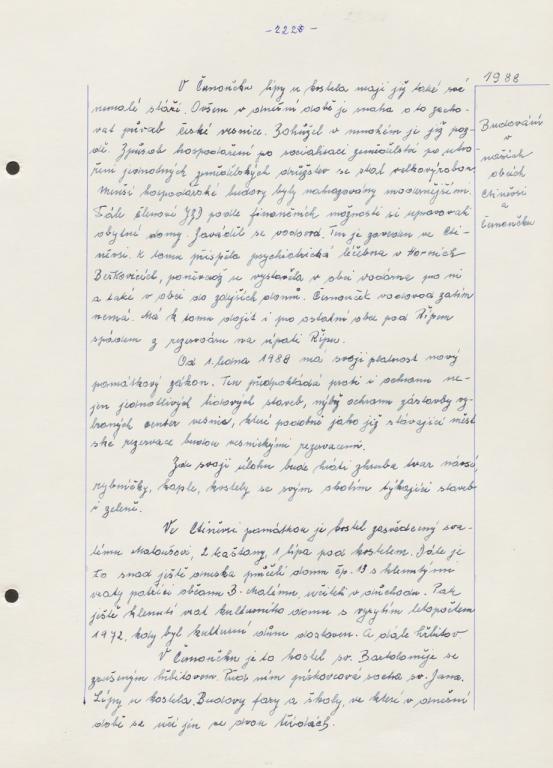 - 222 -
1988
Budování
v
našich
obcích
Ctiněvsi
a
Černoučku
V Černoučku lípy u kostela mají již také své
nemalé stáří. Ovšem v dnešní době je snaha o to zacho-
vat půvab české vesnice. Bohužel v mnohém je již poz-
dě. Způsob hospodaření po socialisaci zemědělství po utvo-
ření jednotných zemědělských družstev se stal velkovýrobou.
Menší hospodářské budovy byly nahrazovány modernějšími.
Dále členové JZD podle finančních možností si upravovali
obytné domy. Zaváděl se vodovod. Ten je zaveden ve Cti-
něvsi. K tomu přispěla psychiatrická léčebna v Horních
Beřkovicích, poněvadž si vystavěla v obci vodárnu pro ni
a také v obci do zdejších domů. Černouček vodovod zatím
nemá. Má k tomu dojít i pro ostatní obce pod Řípem
spádem z rezervoáru na úpatí Řípu.
Od 1. ledna 1988 má svoji platnost nový
památkový zákon. Ten předpokládá proti i ochranu ne-
jen jednotlivých lidových staveb, nýbrž ochranu zástavby vy-
braných center vesnic, které podobně jako již stávající měst-
ské rezervace budou vesnickými rezervacemi.
Zde svoji úlohu bude hráti zhruba tvar návsí,
rybníčky, kaple, kostely se svým okolím týkající staveb
i zeleně.
Ve Ctiněvsi památkou je kostel zasvěcený sva-
tému Matoušovi, 2 kaštany, 1 lípa pod kostelem. Dále je
to snad ještě omska průčelí domu čp. 13 s klenutými
vraty patřící občanu B. Malému, učiteli v důchodu. Pak
ještě klenutí vrat kulturního domu s vyrytím letopočtem
1972, kdy byl kulturní dům dostaven. A dále hřbitov
V Černoučku je to kostel sv. Bartoloměje se
zrušeným hřbitovem. Před ním pískovcová socha sv. Jana.
Lípy u kostela. Budovy fary a školy, ve které v dnešní
době se učí jen ve dvou třídách.